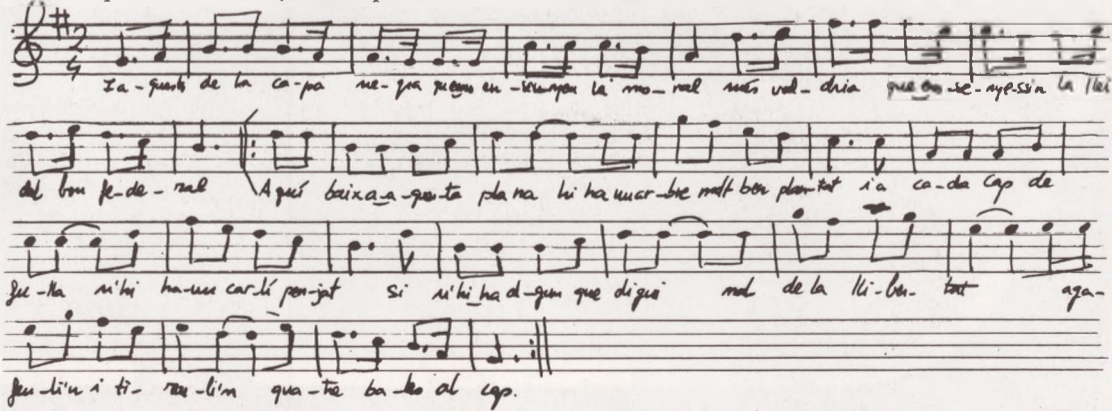 I a-quests de la ca-pa ne-gra que ens en-senyen la mo-ral més val-dria que en-se-nye-ssin la llei
del bon fe-de-ral Aquí baixa a-que-ta plana hi ha un ar-bre molt ben plan-tat i a ca-da cap de
fu-lla n'hi ha-un car-lí pen-jat si n'hi ha al-gun que digui mal de la lli-ber-tat aga-
feu-li'n i ti-reu-li'n qua-tre ba-les al cap.